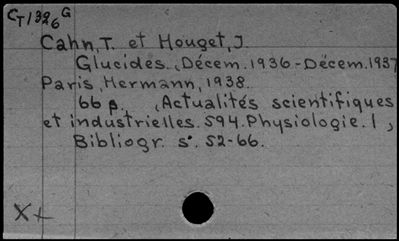 CT1326G
Cahn, T. et Houget, J
Glucides. Décem. 1936-Décem. 1937
Paris, Hermann, 1938.
66 p. (Actualités scientifiques
et industrielles. 594. Physiologie. 1,
Bibliogr. s. 52-66.
X+